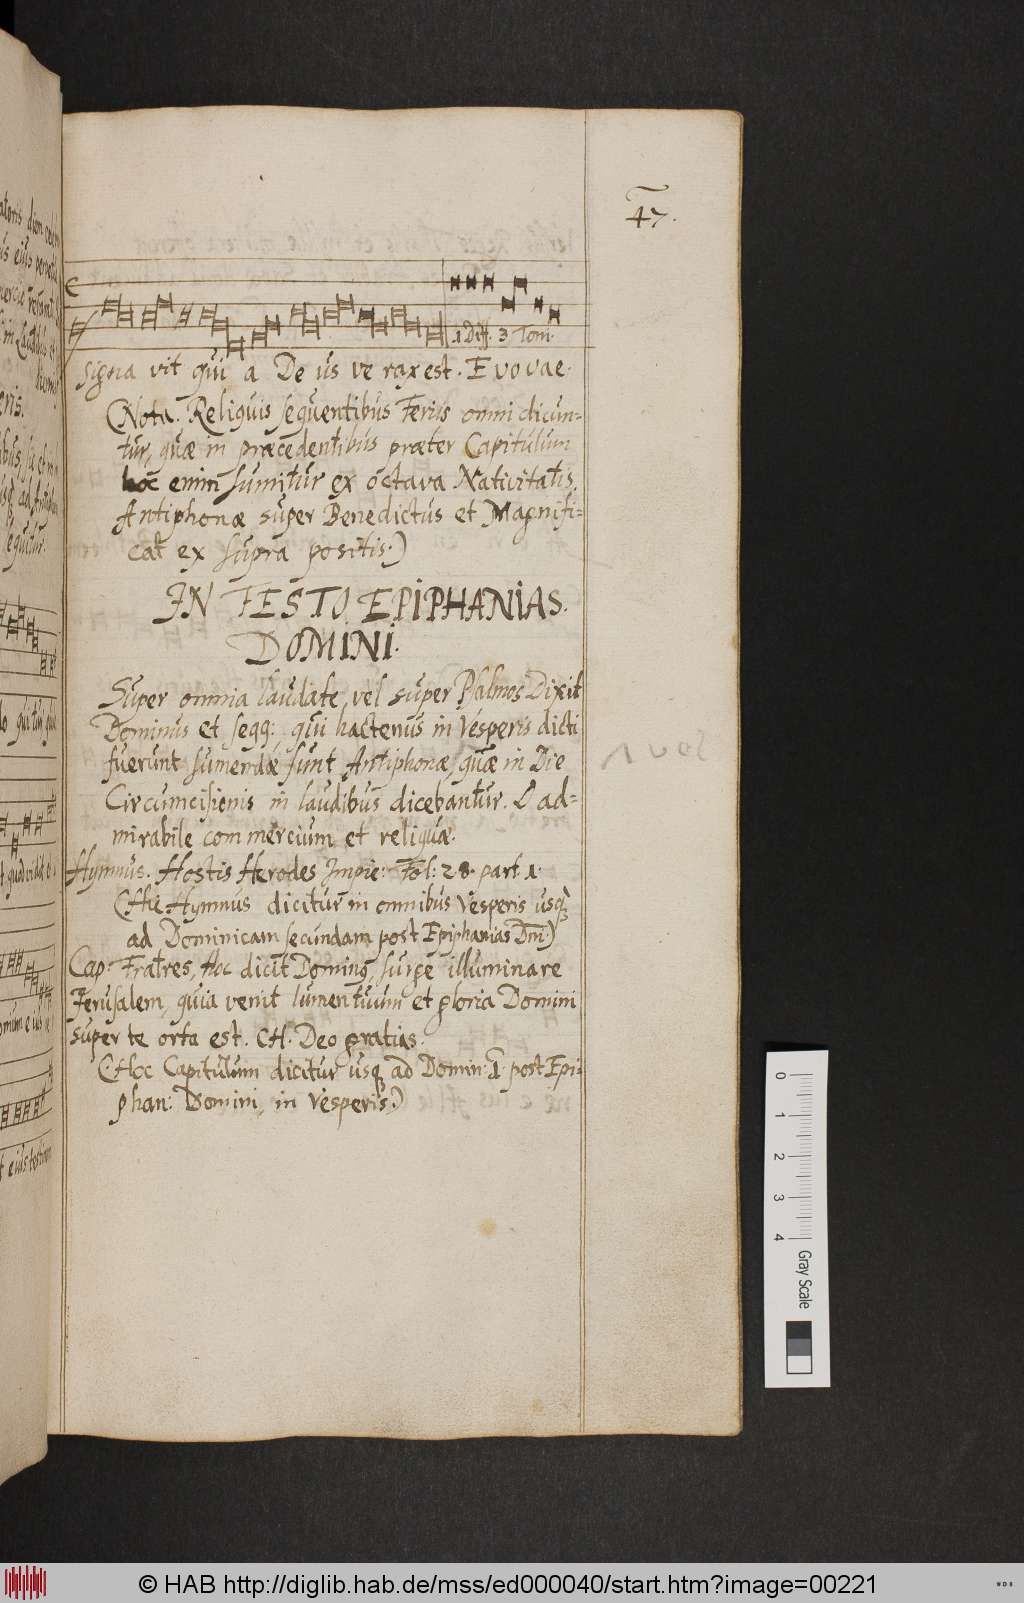 47.
1 Diff. 3 Tom.
signa vit qui a De us ve rax est. Evovae.
(Nota. Reliquis sequentibus Feriis omni dicun-
tur, quæ in præcedentibus præter Capitulum
hoc enim sumitur ex octava Nativitatis.
Antiphonæ super Benedictus et Magnifi-
cat ex supra positis.)
IN FESTO EPIPHANIAS.
DOMINI.
Super omnia laudate, vel super Psalmos Dixit
Dominus et seqq: qui hactenus in Vesperis dicti
fuerunt sumendæ sunt Antiphonæ, quæ in Die
Circumcisionis in laudibus dicebantur. O ad-
mirabile commercium et reliquæ.
Hymnus. Hostis Herodes Impie: Fol: 28. part 1.
(Hic Hymnus dicitur in omnibus Vesperis usq
ad Dominicam secundam post Epiphanias Dni.)
Cap: Fratres, Hoc dicit Doming, surge illuminare
Jerusalem, quia venit lumen tuum et gloria Domini
super te orta est. CH. Deo gratias.
(Hoc Capitulum dicitur usq ad Domin: 1. post Epi-
phan: Domini, in Vesperis.)
0 1 2 3 4 Gray Scale
© HAB http://diglib.hab.de/mss/ed000040/start.htm?image=00221